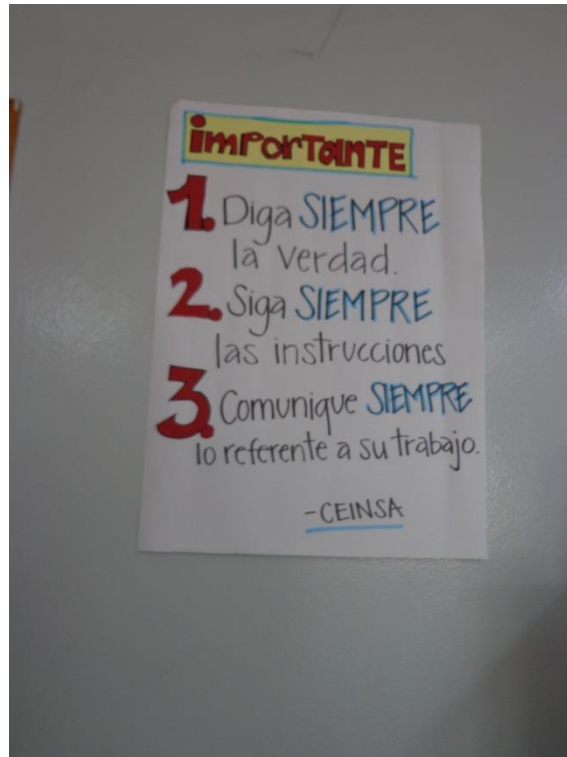 importante
1. Diga SIEMPRE
la verdad.
2. Siga SIEMPRE
las instrucciones
3. Comunique SIEMPRE
lo referente a su trabajo.
-CEINSA